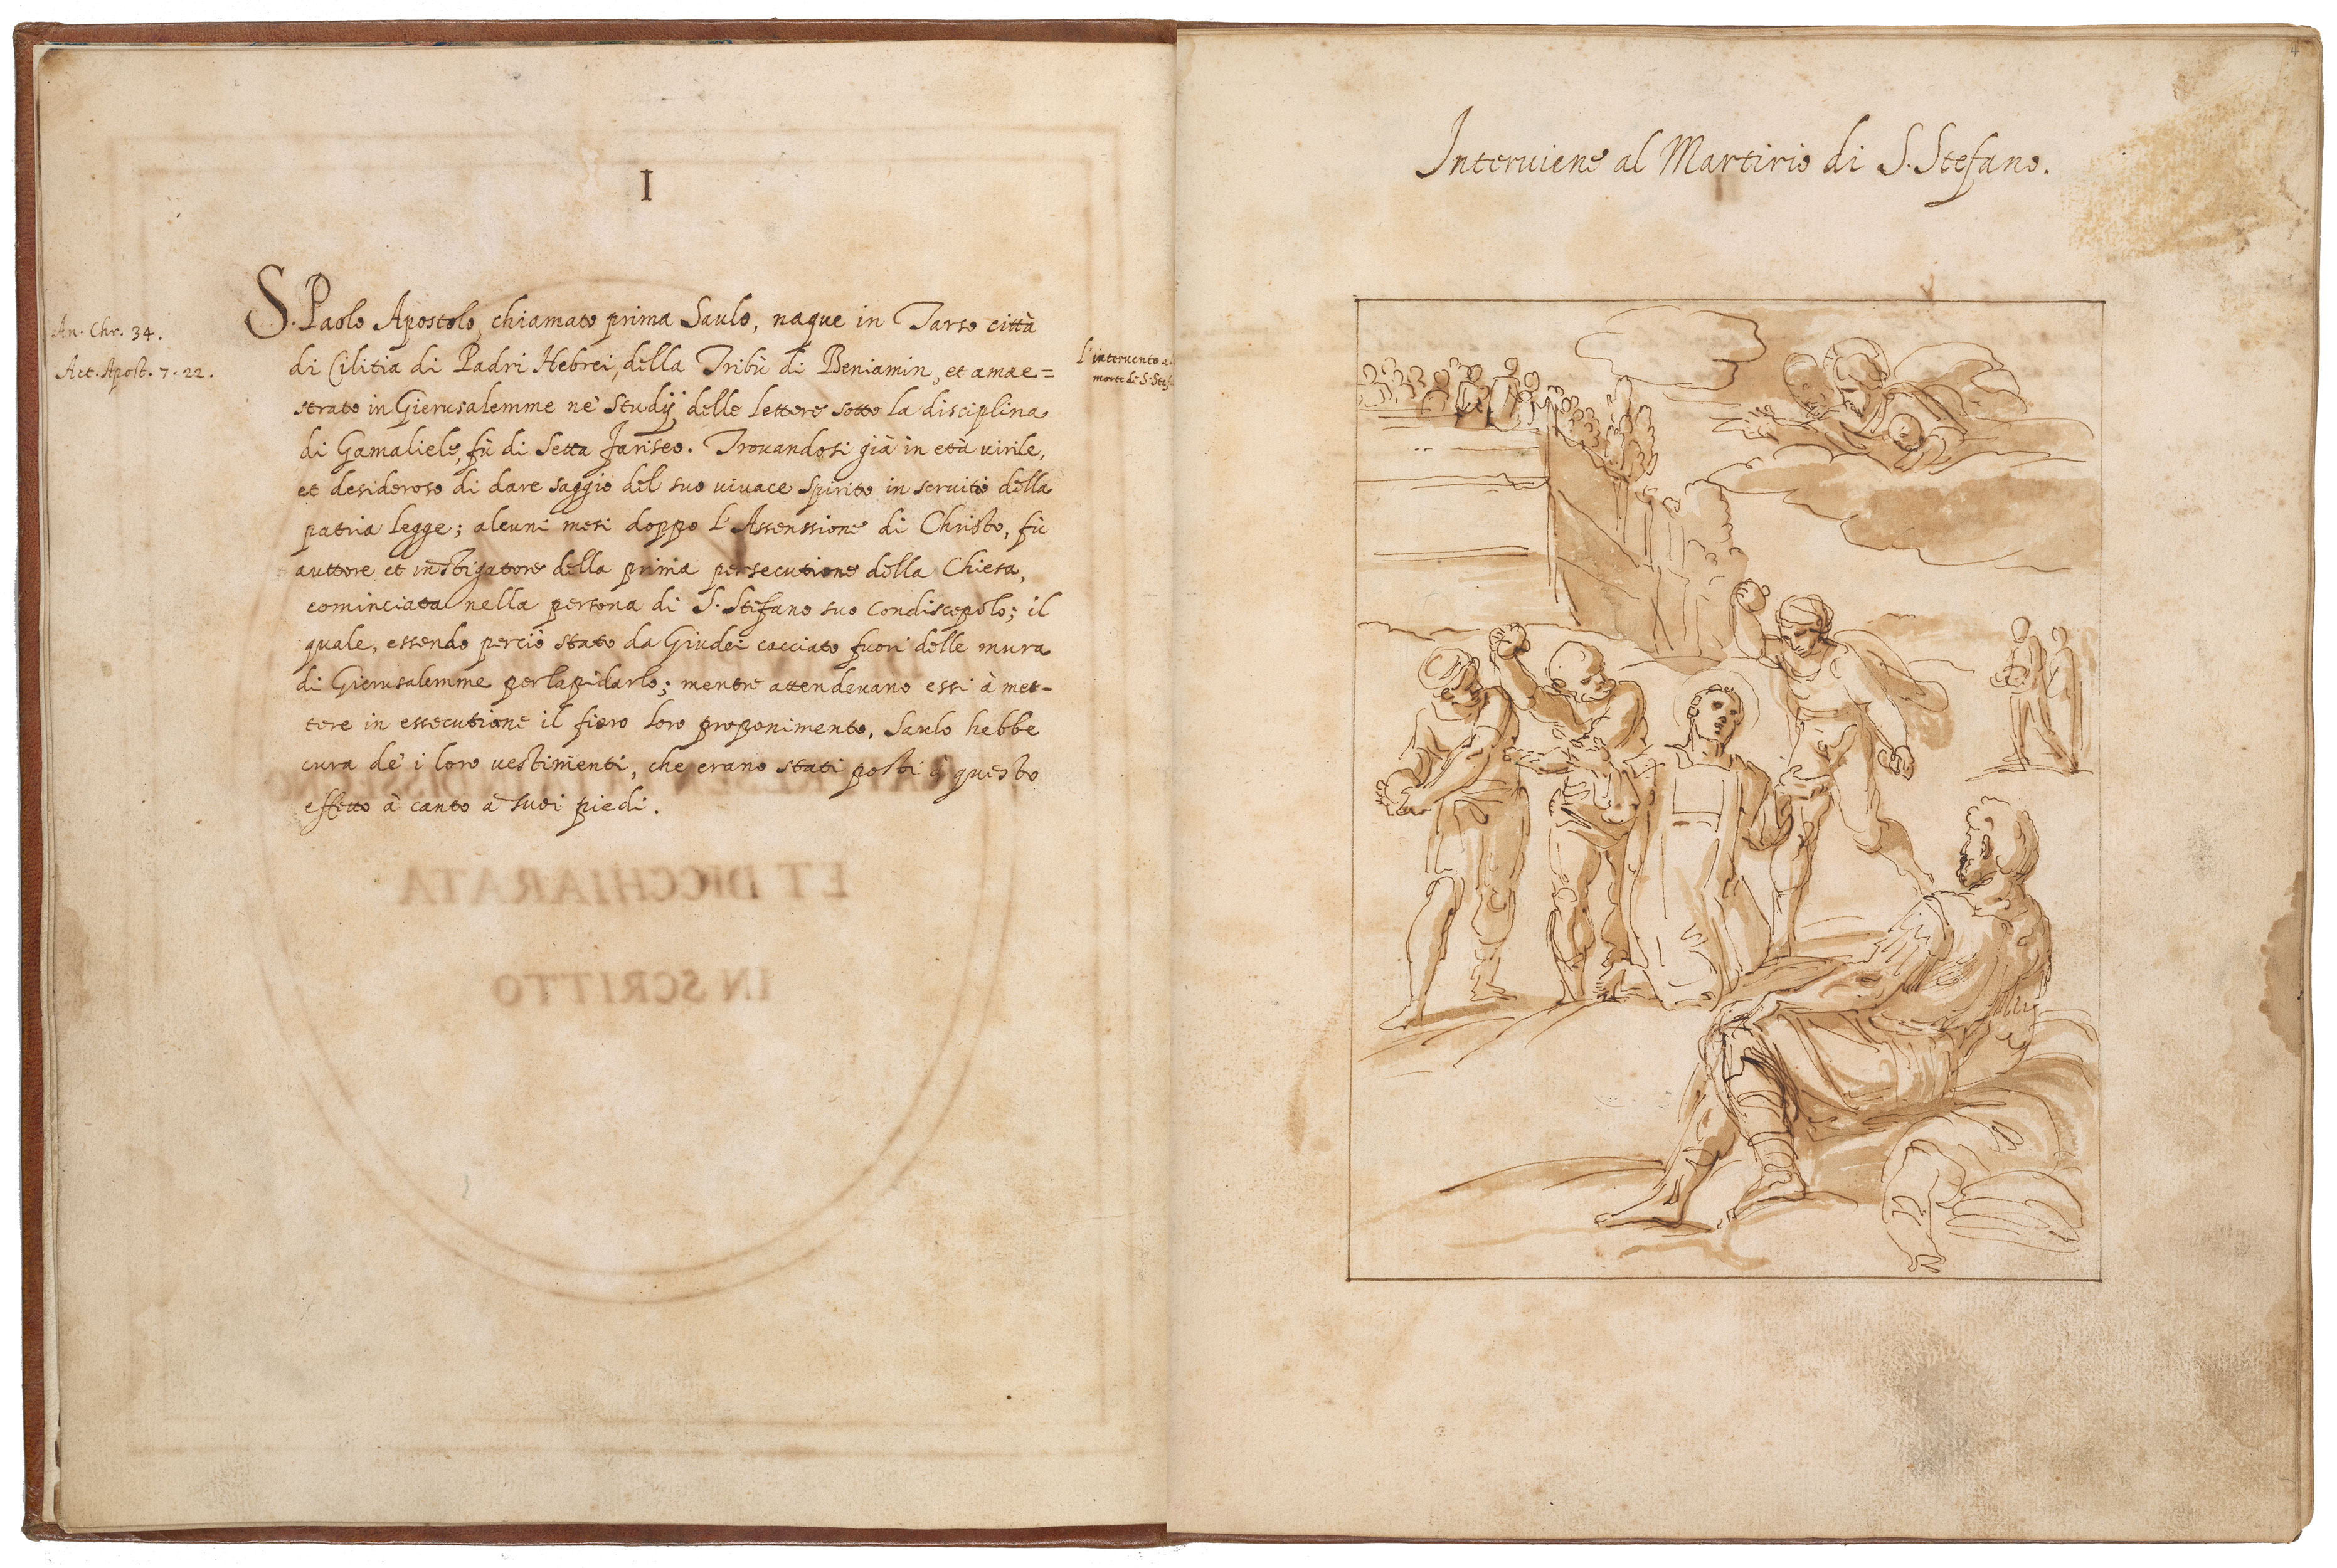 I
An. Chr. 34.
Act. Apost. 7. 22.
S. Paolo Apostolo, chiamato prima Saulo, naque in Tarso città
di Cilitia di Padri Hebrei, della Tribù di Beniamin, et amae=
strato in Gierusalemme ne' Studij delle lettere sotto la disciplina
di Gamaliele, fù di Setta fariseo. Trouandosi già in età uirile,
et desideroso di dare saggio del suo uiuace spirito in seruitio della
patria legge; alcuni mesi doppo l'Assenssione di Christo, fù
auttore et instigatore della prima persecutione della Chiesa,
cominciata nella persona di S. Stefano suo condiscepolo; il
quale, essendo perciò stato da Giudei cacciato fuori delle mura
di Gierusalemme per lapidarlo; mentre attendeuano essi à met-
tere in essecutione il fiero loro proponimento, Saulo hebbe
cura de' i loro uestimenti, che erano stati posti à questo
effetto à canto a suoi piedi.
L'interuento a
morte di S. Stef
ET DICCHIARATA
IN SCRITTO
Interuiene al Martirio di S. Stefano.
4